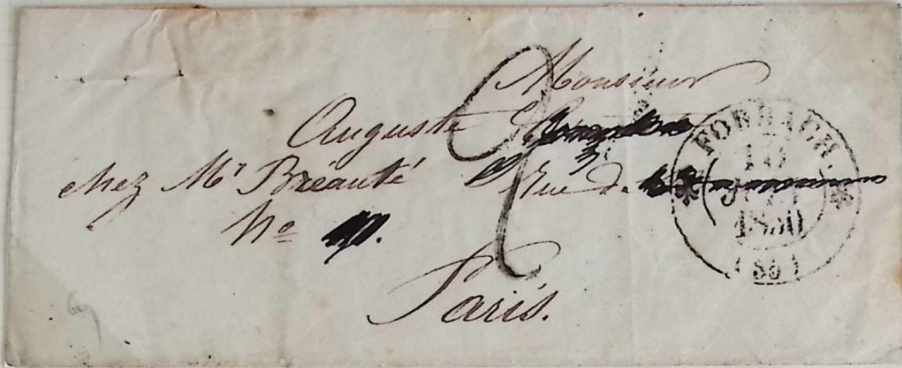 Monsieur
Auguste
chez Mr Bréauté Rue de
No
Paris.
2
FORBACH.
1850